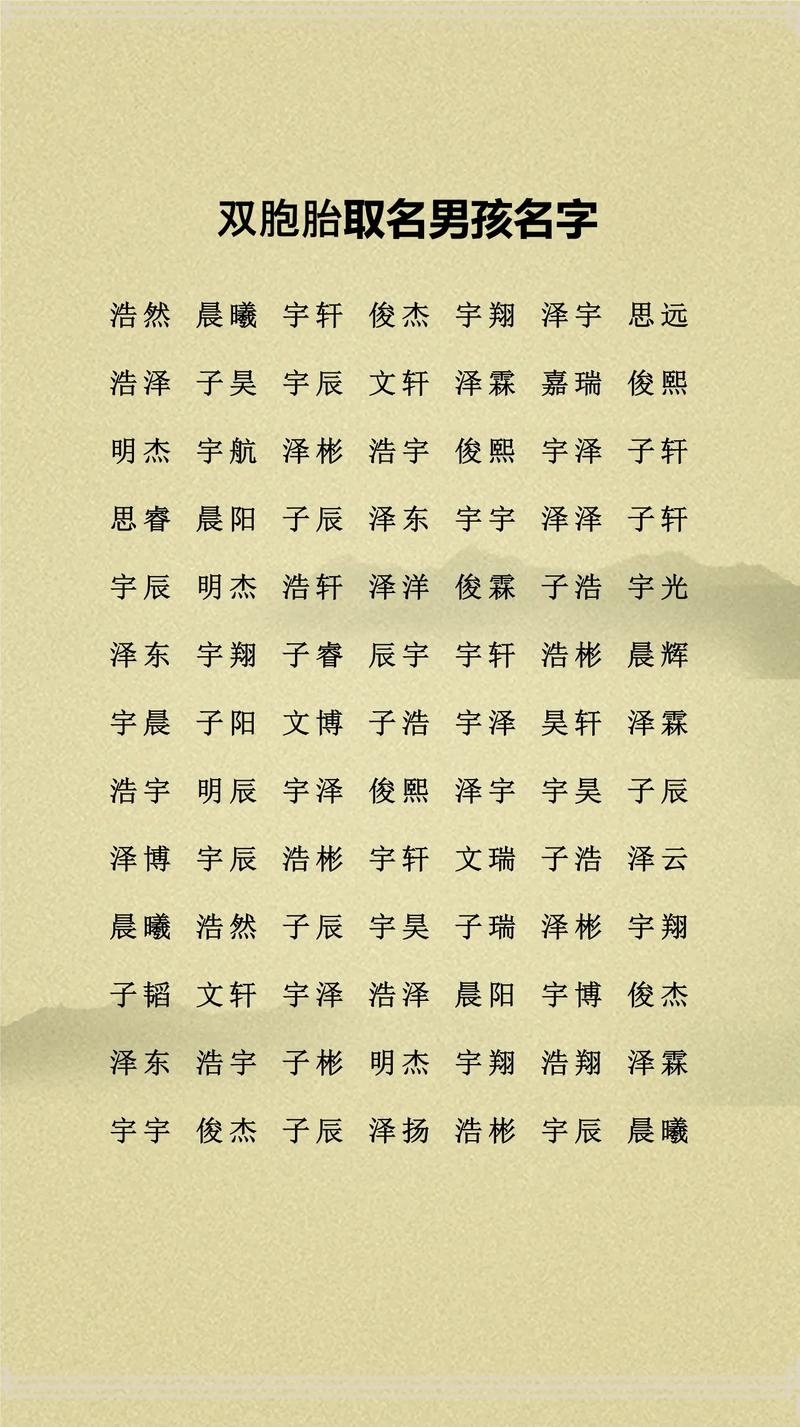 双胞胎取名男孩名字
浩然 晨曦 宇轩 俊杰 宇翔 泽宇 思远
浩泽 子昊 宇辰 文轩 泽霖 嘉瑞 俊熙
明杰 宇航 泽彬 浩宇 俊熙 宇泽 子轩
思睿 晨阳 子辰 泽东 宇宇 泽泽 子轩
宇辰 明杰 浩轩 泽洋 俊霖 子浩 宇光
泽东 宇翔 子睿 辰宇 宇轩 浩彬 晨辉
宇晨 子阳 文博 子浩 宇泽 昊轩 泽霖
浩宇 明辰 宇泽 俊熙 泽宇 宇昊 子辰
泽博 宇辰 浩彬 宇轩 文瑞 子浩 泽云
晨曦 浩然 子辰 宇昊 子瑞 泽彬 宇翔
子韬 文轩 宇泽 浩泽 晨阳 宇博 俊杰
泽东 浩宇 子彬 明杰 宇翔 浩翔 泽霖
宇宇 俊杰 子辰 泽扬 浩彬 宇辰 晨曦